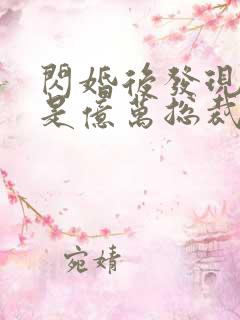 閃婚後發現
是億萬總裁
宛婧